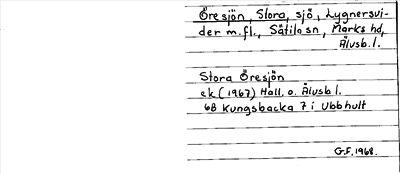 Öresjön, Stora, sjö, Lygnersvi-
der m.fl., Sätila sn, Marks hd,
Älvsb.l.
Stora Öresjön
ek (1967) Hall. o. Älvsb l.
6B Kungsbacka 7 i Ubbhult
G.F. 1968.